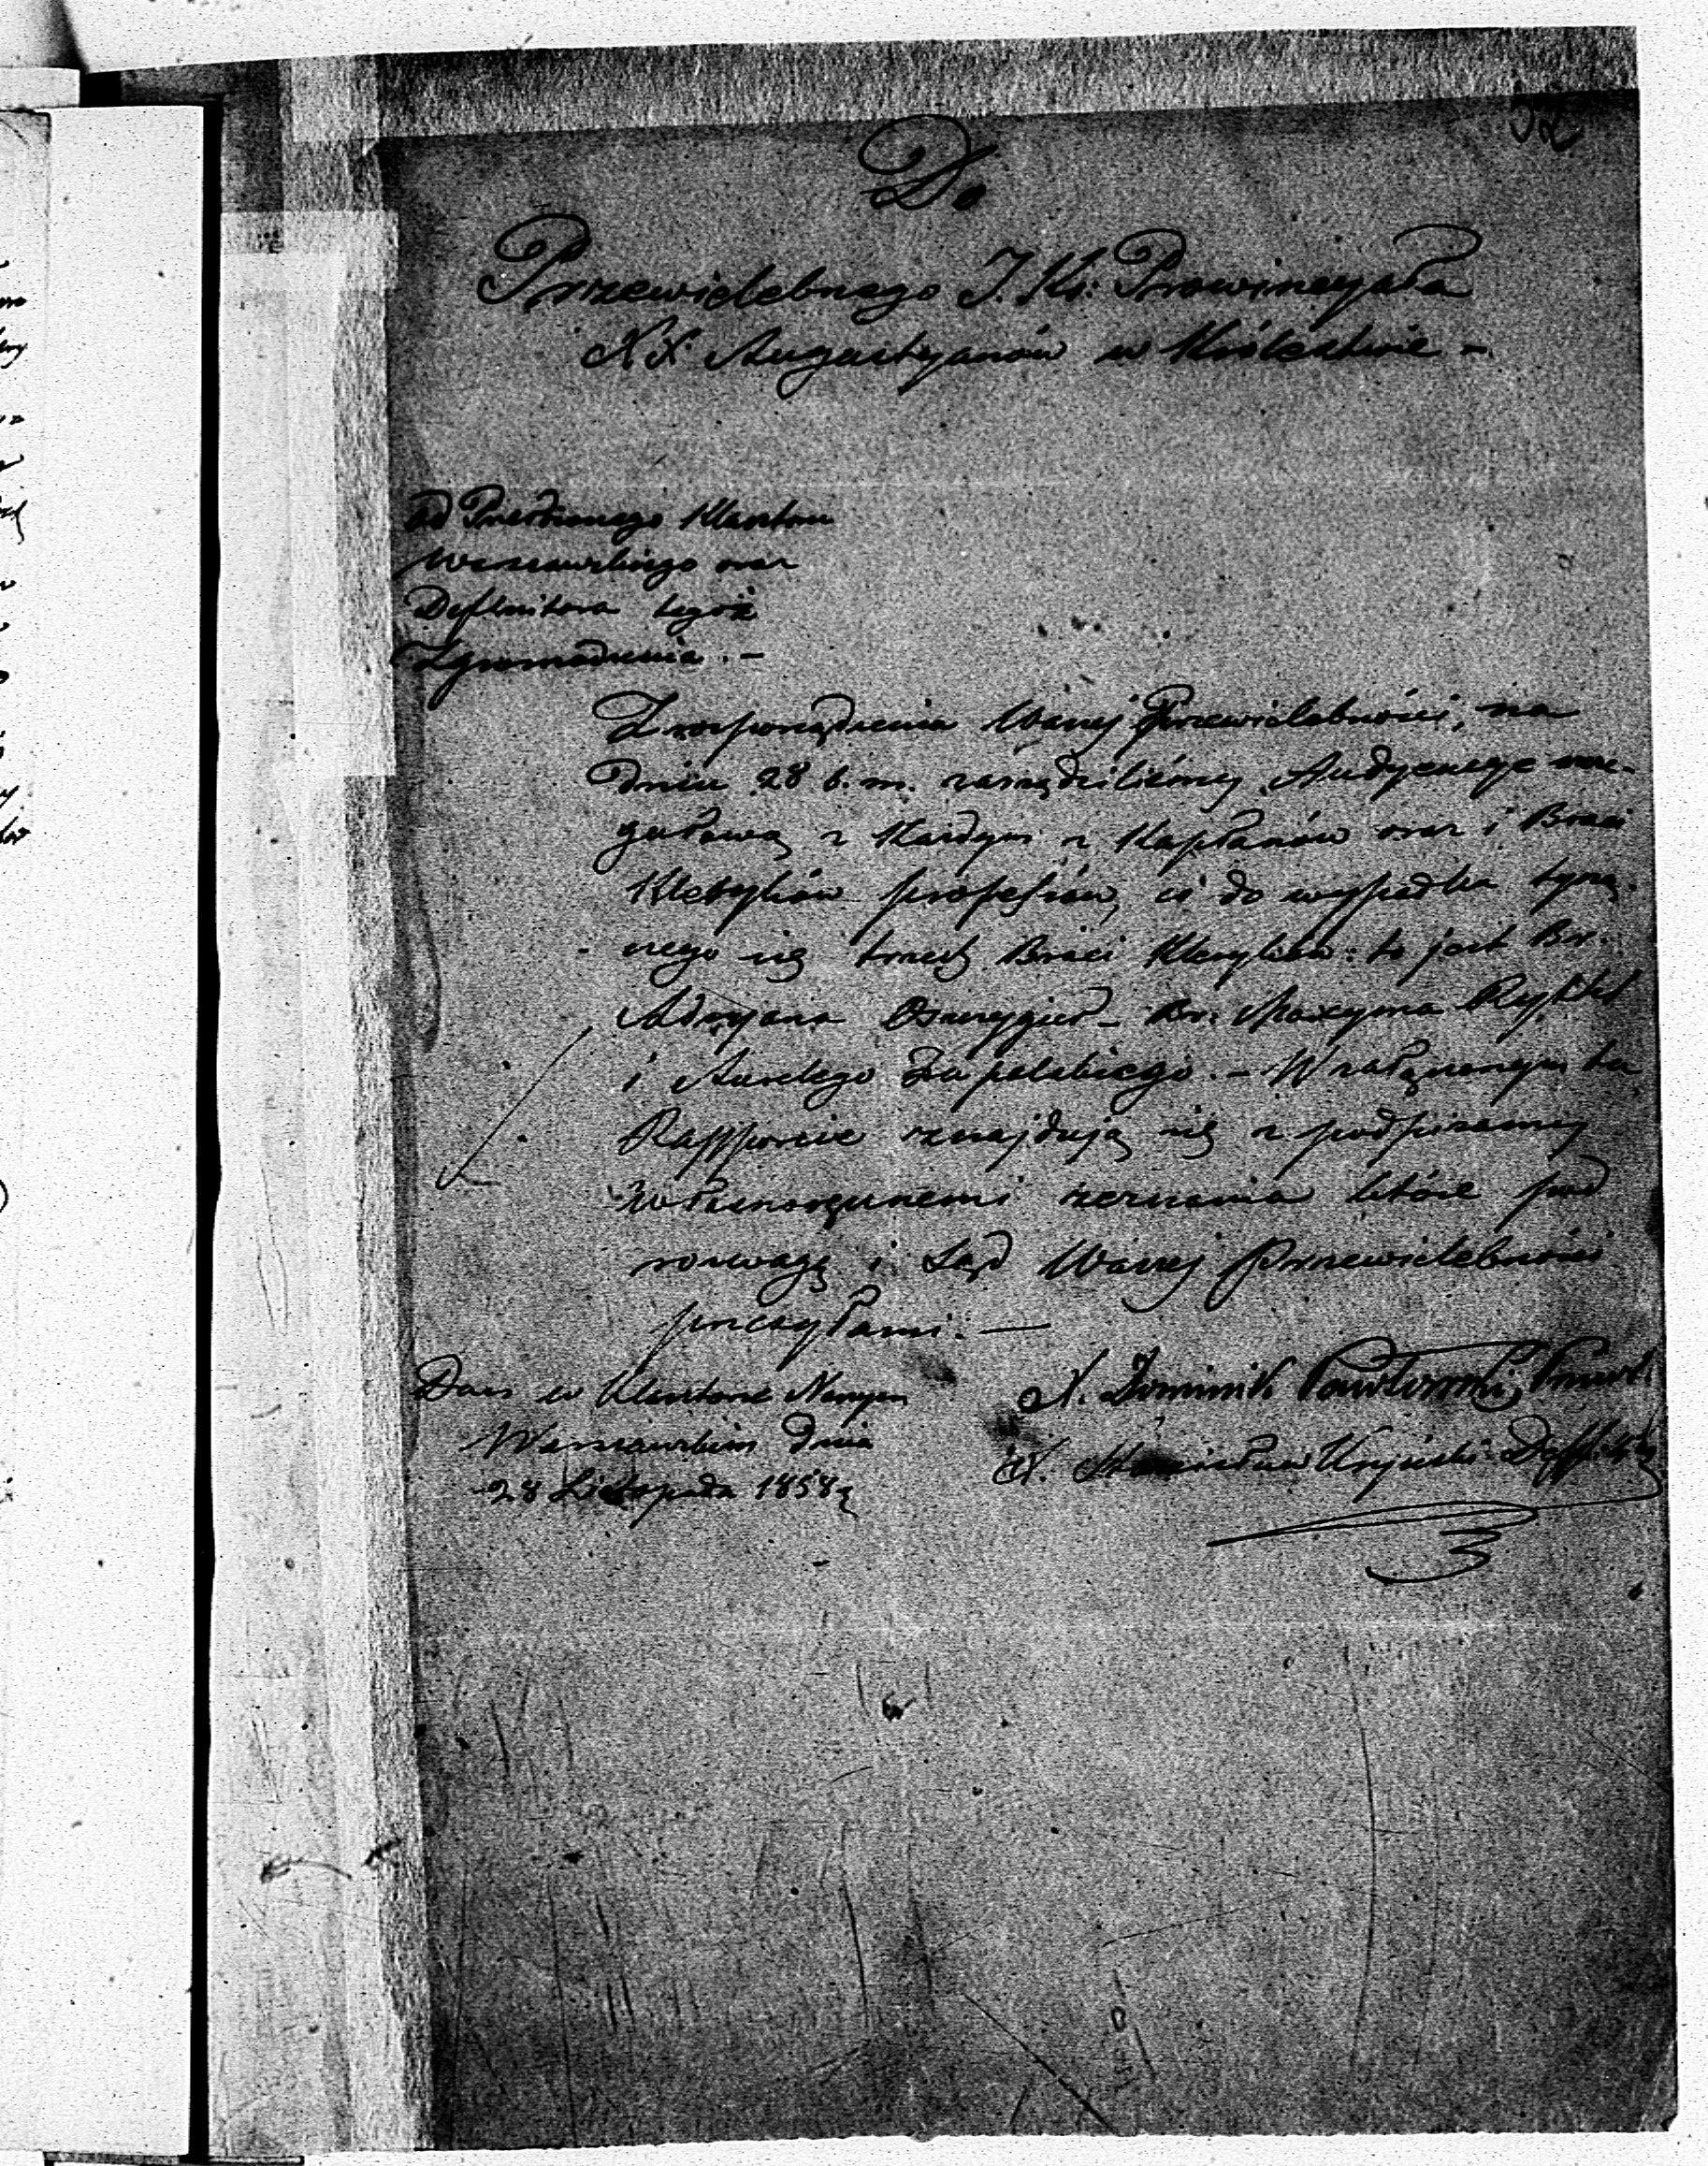 32
Do
Przewielebnego J. Ks: Prowincyała
XX Augustyanów w Królestwie –
od Przełożonego Klasztoru
Warszawskiego oraz
Deffinitora tegoż
Zgromadzenia. –
Z rozporządzenia Waszej Przewielebności, na
dniu 28 b. m. zarządziliśmy Audyencyę
z Każdym z Kapłanów oraz i Braci
Kleryków professów, co do wypadku tyczą-
cego się trzech Braci Kleryków: to jest Br.
Adryana Br: Maxyma
i – W załączonym tu
Rapporcie znajdują się z podpisamy
własnoręcznemi zeznania które pod
rozwagę i Sąd Waszej Przewielebności
przesyłamy. —
Dan w Klasztorze Naszym
Warszawskim dnia
28 Listopada 1858
X. Dominik
X. Stanisław